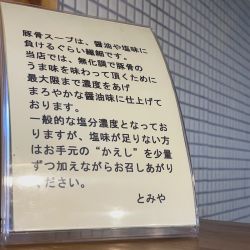 豚骨スープは、醤油や塩味に
負けるぐらい繊細です。
当店では、無化調で豚骨の
うま味を味わって頂くために
最大限まで濃度をあげ
まろやかな醤油味に仕上げて
おります。
一般的な塩分濃度となってお
りますが、塩味が足りない方
はお手元の“かえし”を少量
ずつ加えながらお召しあがり
ください。
とみや